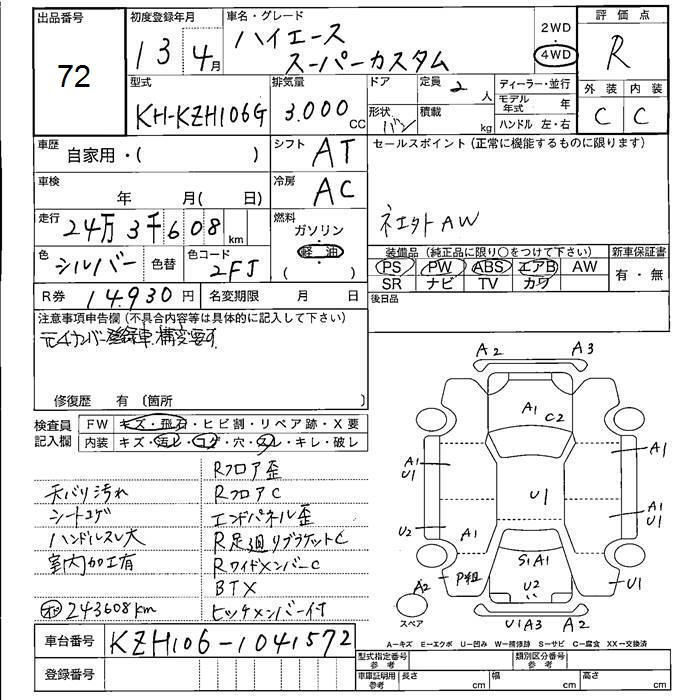 出品番号
72
初度登録年月
13 4月
車名・グレード
ハイエース
スーパーカスタム
2WD
4WD
評価点
R
型式
KH-KZH106G
排気量
3.000 CC
ドア
定員 2 人
形状 バン
積載 kg
ディーラー・並行
モデル年式 年
ハンドル 左・右
外装 内装
C C
車歴
自家用・( )
シフト
AT
車検
年 月( 日)
冷房
AC
走行
24万3千608 km
燃料
ガソリン
軽油
( )
色
シルバー
色替
色コード
2FJ
R券 14.930円
名変期限 月 日
セールスポイント(正常に機能するものに限ります)
社外AW
装備品(純正品に限り○をつけて下さい)
PS PW ABS エアB AW
SR ナビ TV カワ
新車保証書
有・無
後日品
注意事項申告欄(不具合内容等は具体的に記入して下さい)
修復歴 有 〔箇所
検査員
記入欄
FW キズ・飛石・ヒビ割・リペア跡・X要
内装 キズ・汚レ・コゲ・穴・スレ・キレ・破レ
天バリ汚れ
シートコゲ
ハンドルスレ大
室内加工有
243608km
Rフロア歪
RフロアC
エンドパネル歪
R足廻リブラケットC
RサイドメンバーC
BTX
ヒッチメンバー付
A2 A3
A1
C2
A1
U1
A1
U1
A1
U1
U2
A1
S1A1
U2
A2
U1
U1A3 A2
スペア
A=キズ E=エクボ U=凹み W=補修跡 S=サビ C=腐食 XX=交換済
車台番号
KZH106-1041572
登録番号
型式指定番号
参考
類別区分番号
参考
車庫証明用
参考
長さ cm
幅 cm
高さ cm